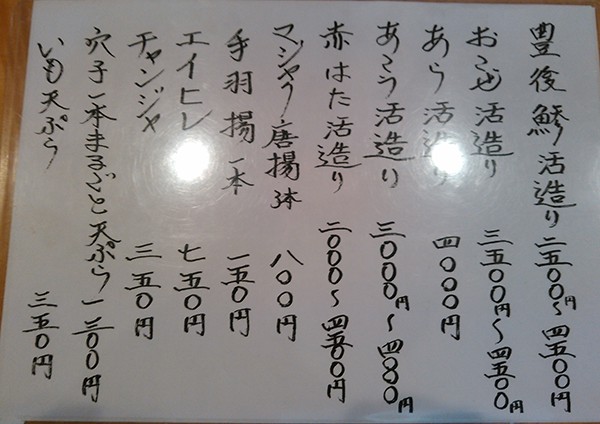 豊後鯵活造り 二五〇〇円～四五〇〇円
おこぜ活造り 三五〇〇円～四五〇〇円
あら活造り 四〇〇〇円
あこう活造り 三〇〇〇円～四〇〇〇円
赤はた活造り 二〇〇〇～四五〇〇円
マジャク唐揚3本 八〇〇円
手羽揚一本 一五〇円
エイヒレ 七五〇円
チャンジャ 三五〇円
穴子一本まるごと天ぷら 一三〇〇円
いも天ぷら 三五〇円